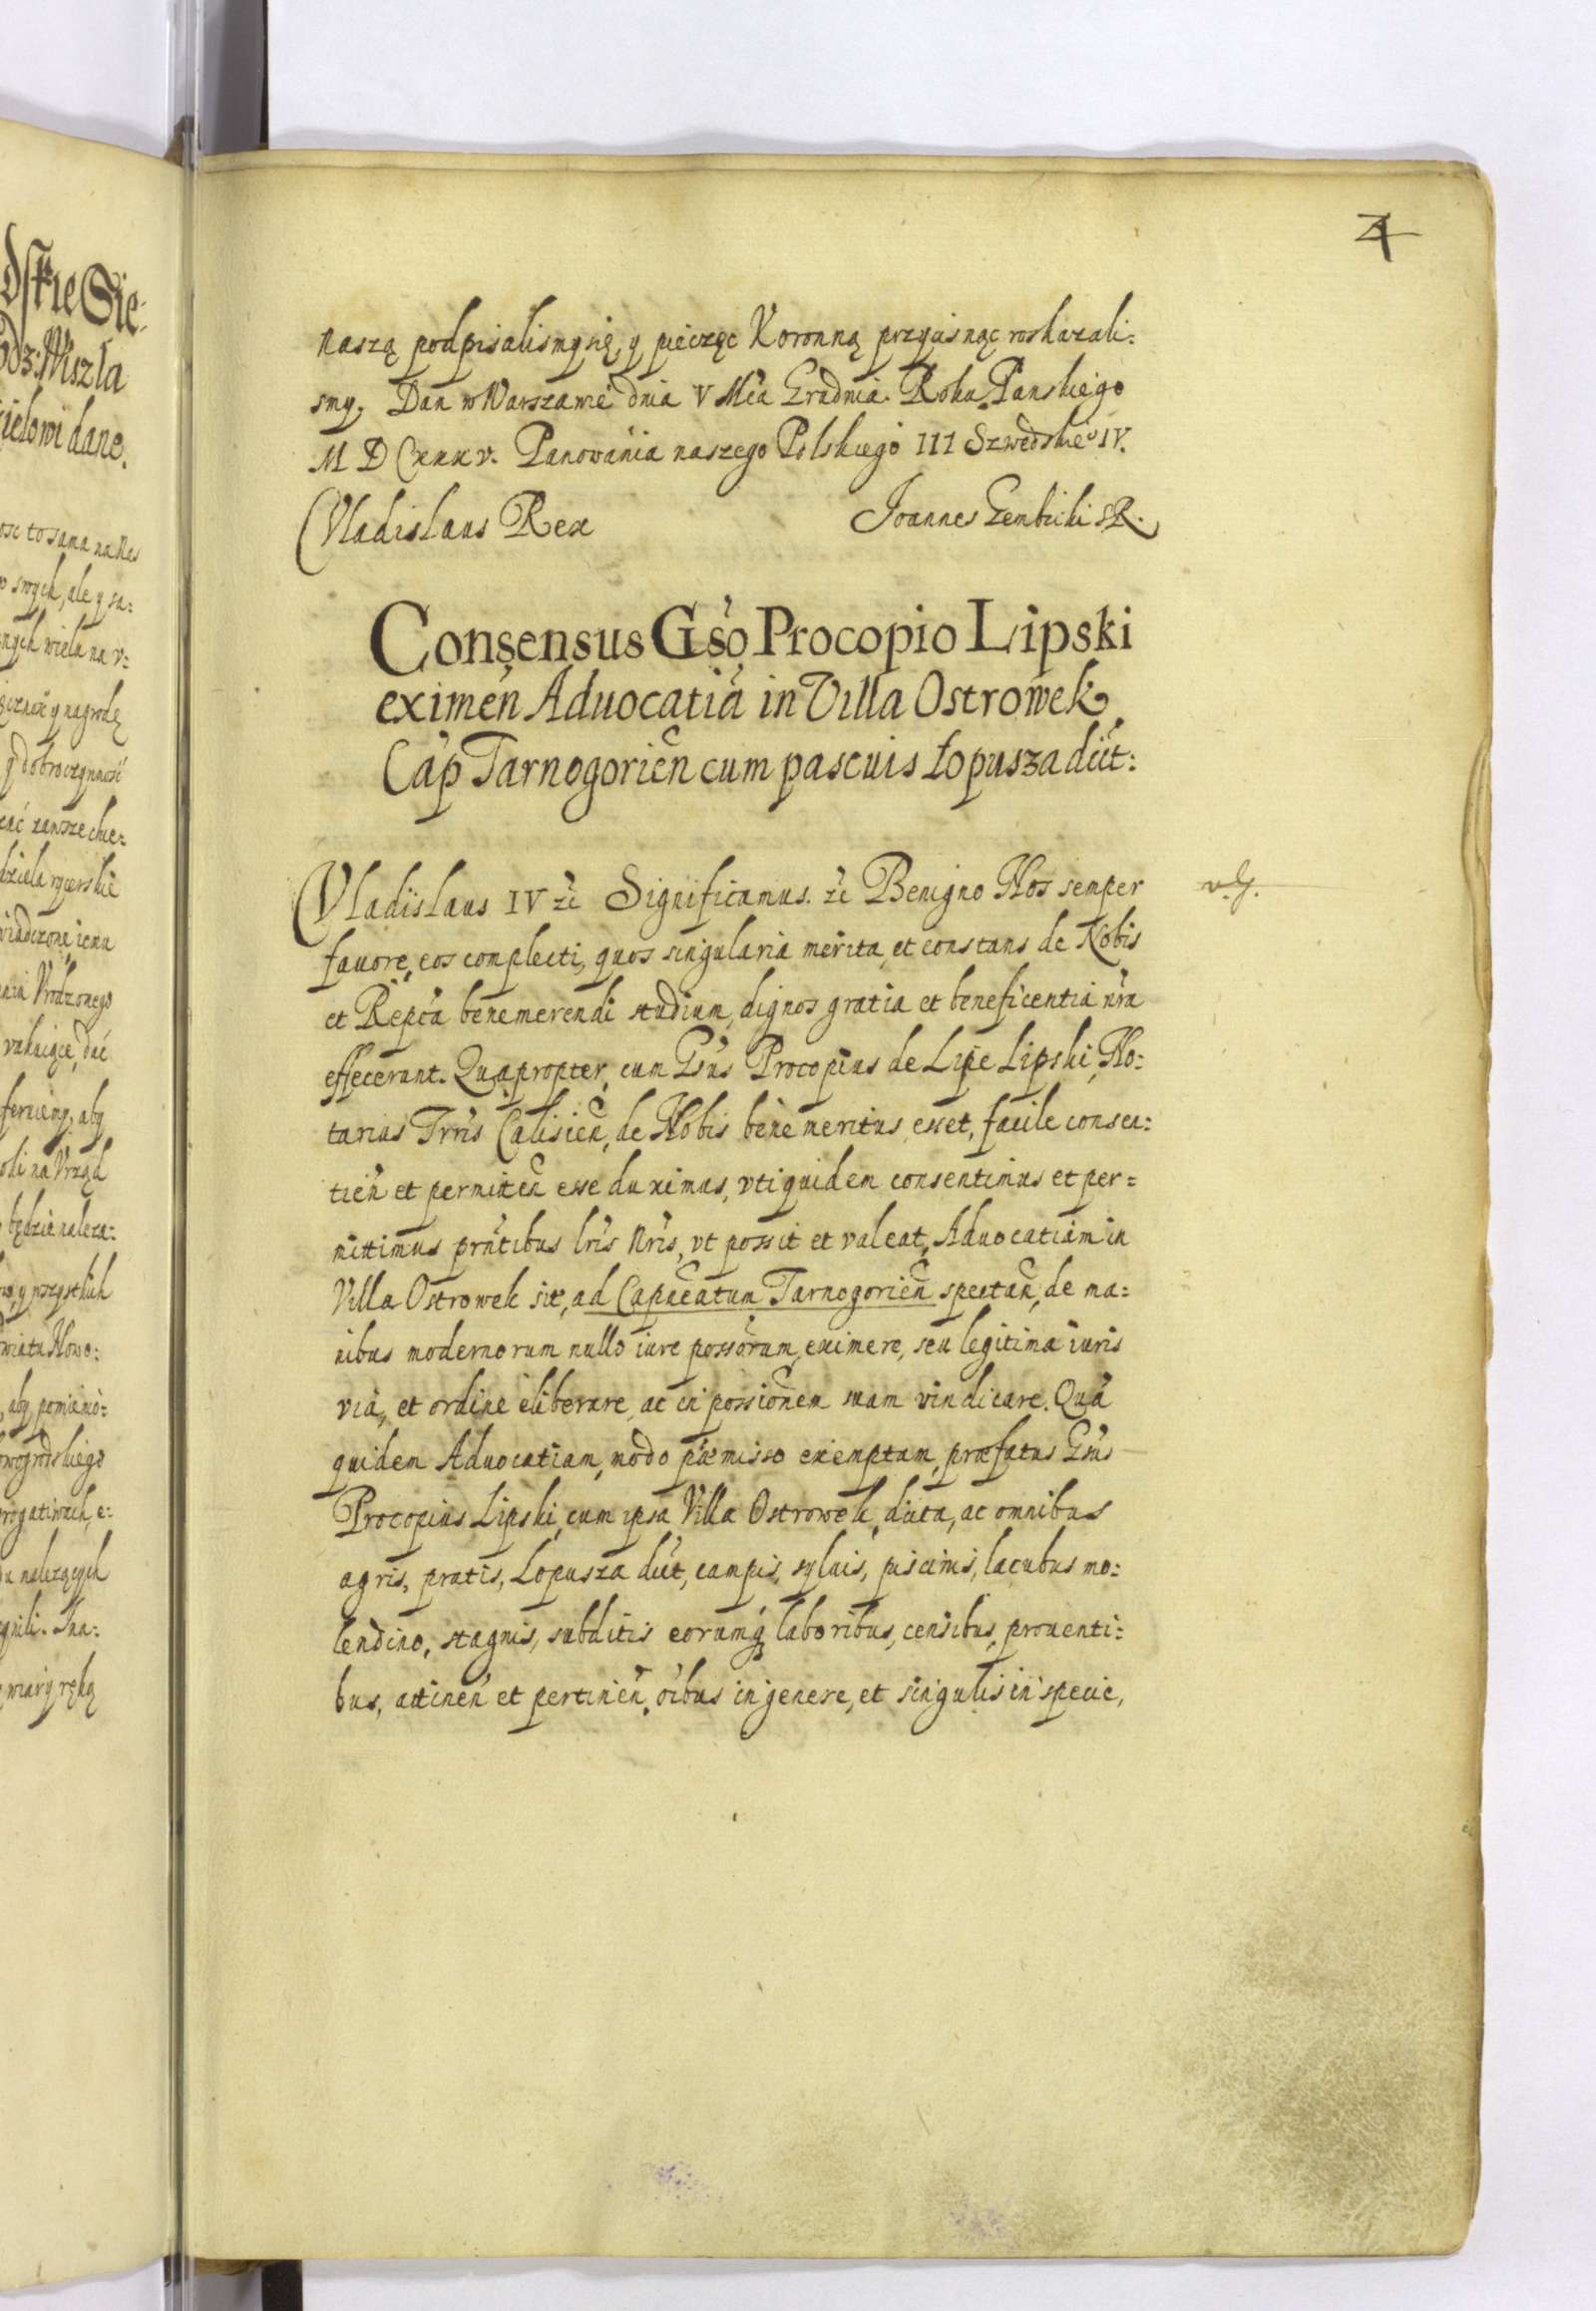 4
naszą podpisalismy się, y pieczęć Koronną przycisnąć roskazali:
smy. Dan w Warszawie dnia V Mca Grudnia. Roku Panskiego
M D C xxx v. Panowania naszego Polskiego III Szwedskie° IV.
Vladislaus Rex Joannes Gembicki SR.
Consensus Gso Procopio Lipski
eximen Aduocatia in Villa Ostrowek
Cap Tarnogorien cum pascuis Łopusza dict:
Vladislaus IV zc Significamus. zc Benigno Nos semper
fauore, eos complecti, quos singularia merita, et constans de Nobis
et Repca benemerendi studium, dignos gratia et beneficentia nra
effecerunt. Quapropter, cum Gsus Procopius de Lipe Lipski, No:
tarius Trris Calisien, de Nobis bene meritus esset, facile consen:
tien et permitten esse duximus, vti quidem consentimus et per=
mittimus prntibus lris nris, vt possit et valeat, Aduocatiam in
Villa Ostrowek sit, ad Capneatum Tarnogorien spectan, de ma:
nibus modernorum nullo iure possorum, eximere, seu legitima iuris
via, et ordine eliberare, ac in possionem suam vindicare. Qua
quidem Aduocatiam, modo præmisso exemptam, præfatus Gsus
Procopius Lipski, cum ipsa Villa Ostrowek, dicta, ac omnibus
agris, pratis, Lopusza dict, campis, syluis, piscinis, lacubus mo:
lendino, stagnis, subditis eorumq laboribus, censibus, prouenti:
bus, attinen et pertinen, oibus in genere, et singulis in specie,
dskie Sie:
odz: Wiszla
ielowi dane.
swych, ale y sa:
nych wielu na v:
y nagrodę
y dobroczynność
zawsze chce:
dziela rycerskie
Vrodzonego
dać
aby
na Vrząd
będzie należa:
y wszystkich
Nowo:
aby pomienio:
owogrodskiego
rogatiwach, e:
u należących
wiary ręką